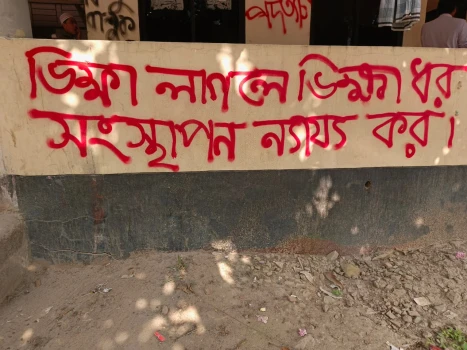 পদত্যাগ
ভিক্ষা লাগলে ভিক্ষা ধর
সংস্থাপন ন্যায্য কর।